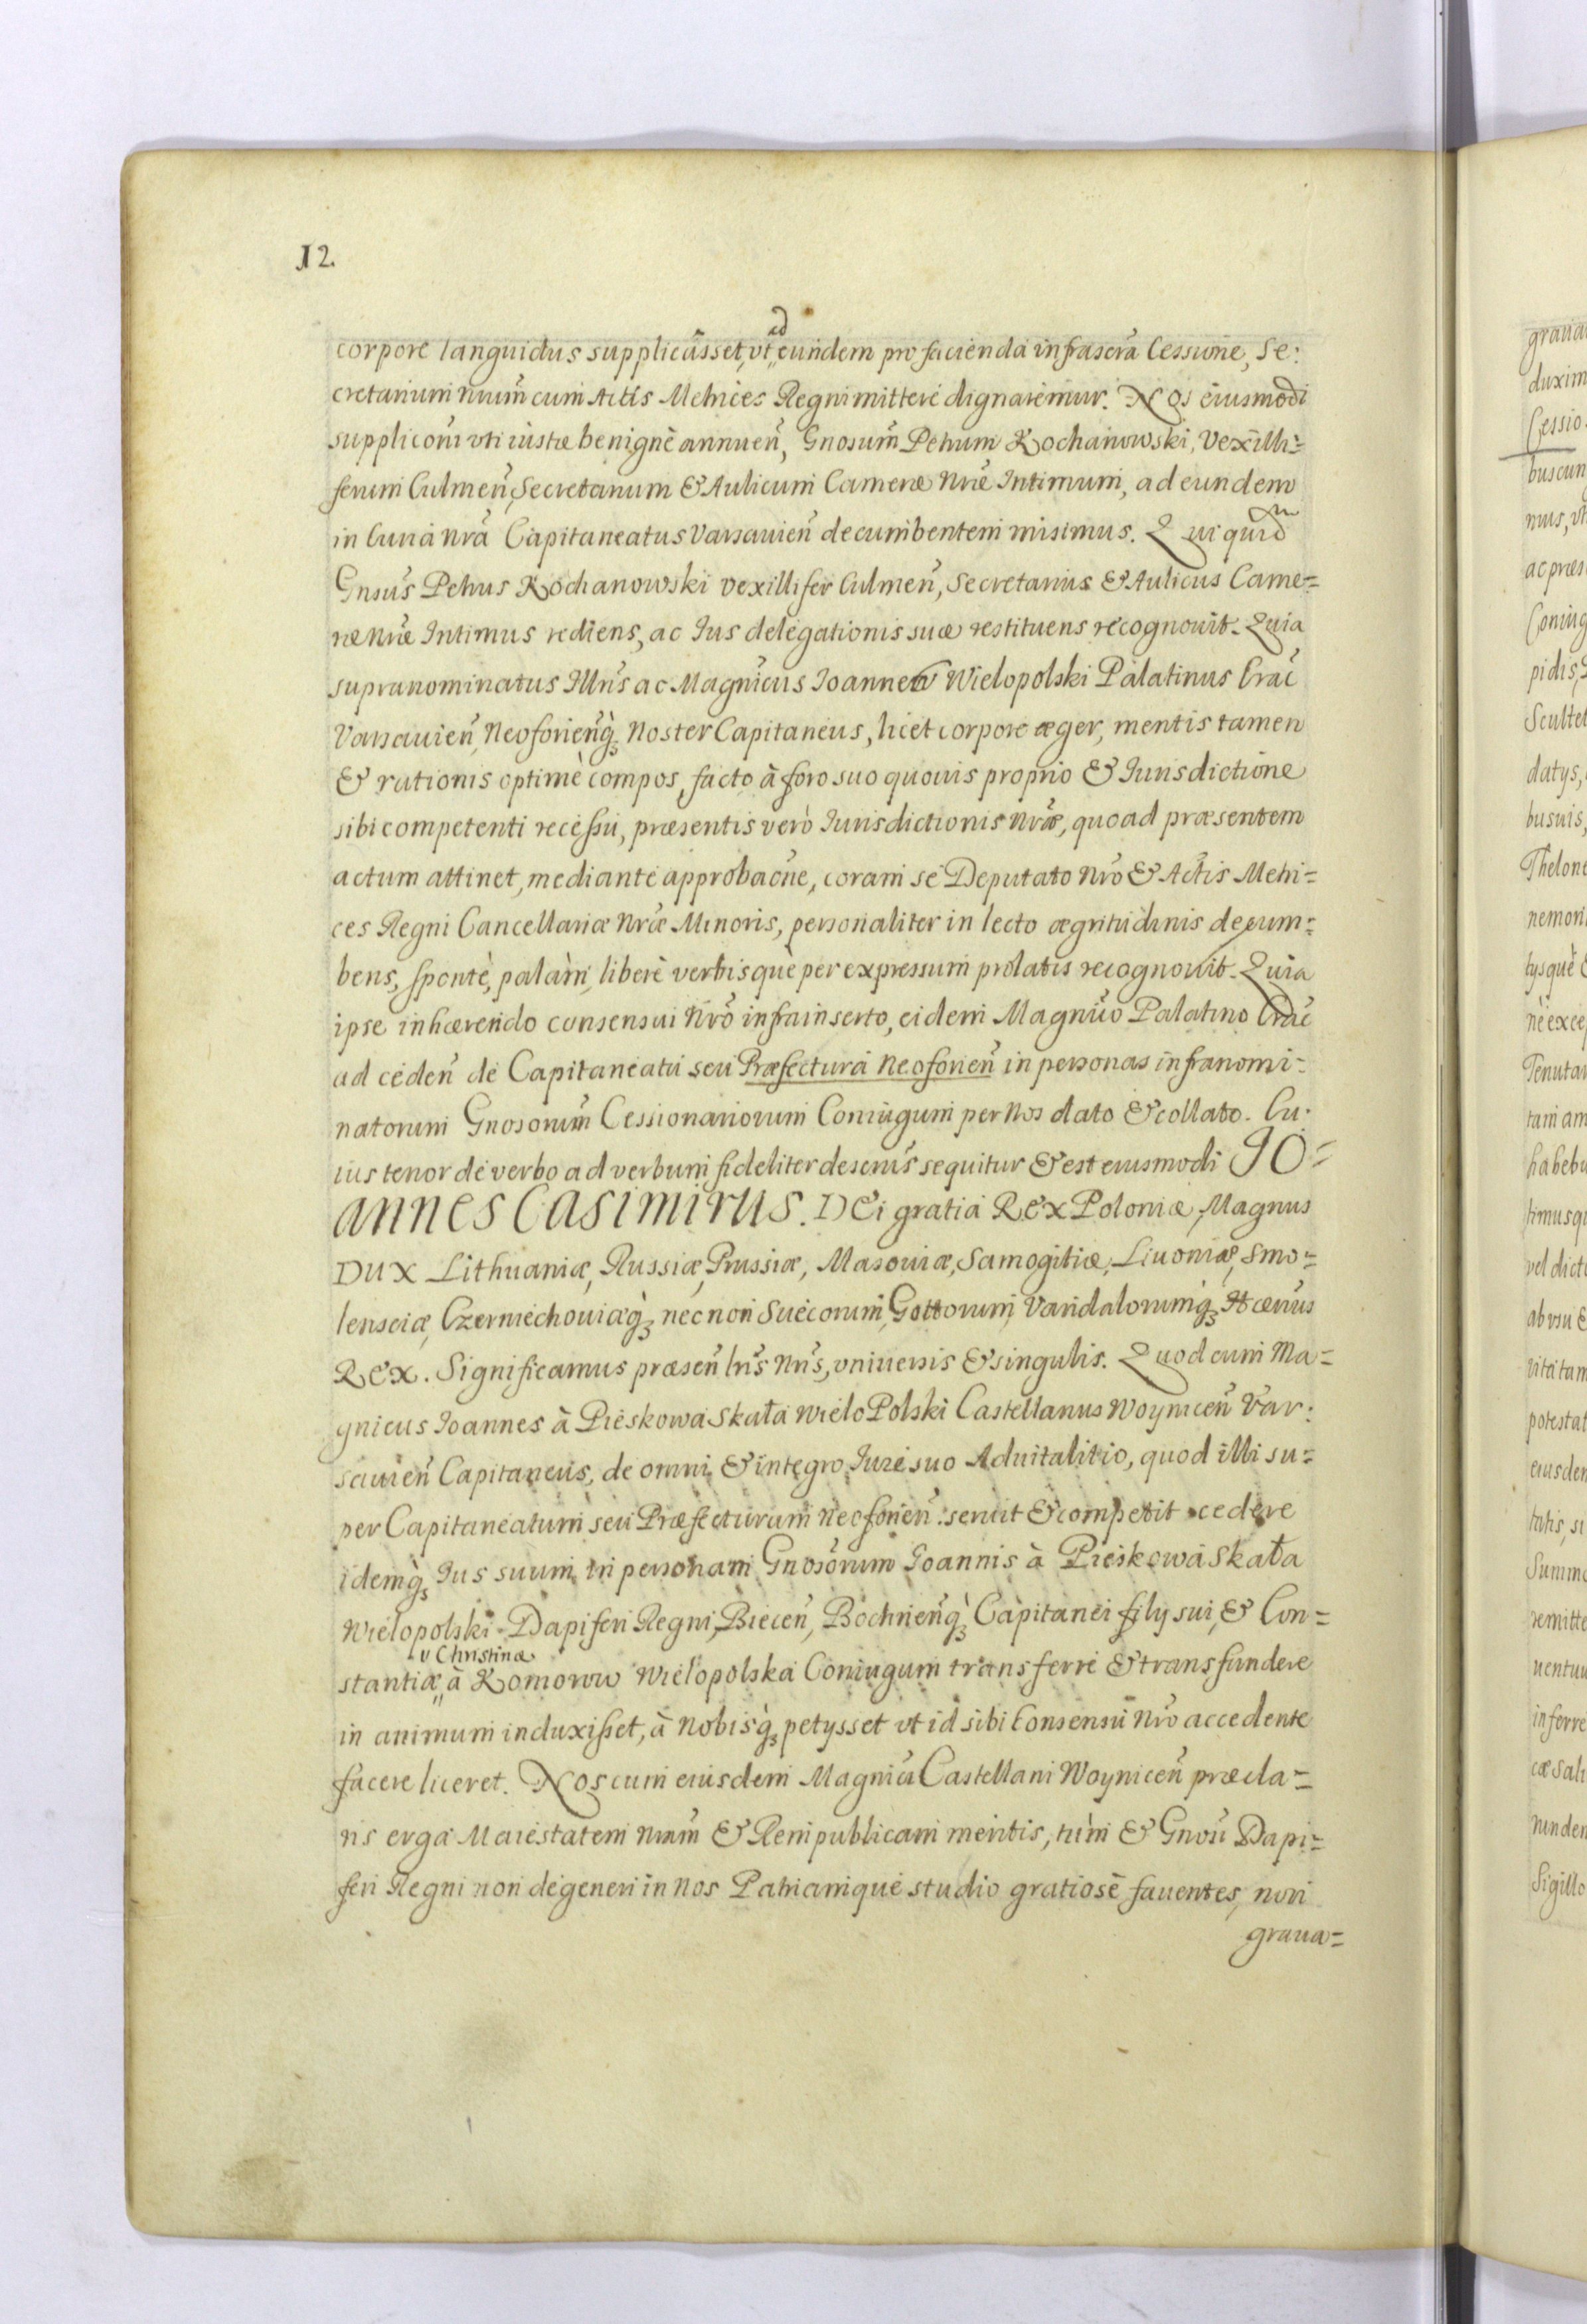 12.
ad
corpore languidus supplicâsset, vt„ eundem pro facienda infrascrã Cessione, Se:
cretarium nrũm cum Actis Metrices Regni mittere dignaremur. Nos eiusmodi
supplicõni vti iustæ benignè annueñ, Gnosum̃ Petrum Kochanowski, Vexilli=
ferum Culmeñ, Secretarium & Aulicum Cameræ Nræ̃ Intimum, ad eundem
in Curia Nrã Capitaneatus Varsauieñ decumbentem misimus. Qui quid̃m
Gnsũs Petrus Kochanowski Vexillifer Culmeñ, Secretarius & Aulicus Came=
ræ Nræ̃ Intimus rediens, ac Ius delegationis suæ restituens recognouit. Quia
supranominatus Illñs ac Magñicus Ioannes Wielopolski Palatinus Crac̃
Varsauieñ, Neoforieñq̀ꝫ Noster Capitaneus, licet corpore æger, mentis tamen
& rationis optimè compos, facto à foro suo quouis proprio & Iurisdictione
sibi competenti recessu, præsentis verò Iurisdictionis Nræ̃, quoad præsentem
actum attinet, mediante approbacñe, coram se Deputato Nrõ & Actis Metri=
ces Regni Cancellariæ Nræ̃ Minoris, personaliter in lecto ægritudinis decum=
bens, spontè, palàm, liberè verbisquè per expressum prolatis recognouit. Quia
ipse inhærendo consensui Nrõ infrainserto, eidem Magnĩco Palatino Crac̃
ad cedeñ de Capitaneatu seu Præfectura Neoforieñ in personas infranomi=
natorum Gnosorum̃ Cessionariorum Coniugum per Nos dato & collato. Cu:
ius tenor de verbo ad verbum fideliter descrũs sequitur & est eiusmodi IO=
annes Casimirus. DEi gratia REx Poloniæ, Magnus
Dux Lithuaniæ, Russiæ, Prussiæ, Masouiæ, Samogitiæ, Liuoniæ, Smo=
lensciæ, Czerniechouiæq̀ꝫ nec non Suecorum, Gottorum, Vandalorumq̀ꝫ Hæreñus
REx. Significamus præseñ lrĩs Nrĩs, vniuersis & singulis. Quod cum Ma=
gnicus Ioannes à Pieskowa Skała WieloPolski Castellanus Woyniceñ Var:
sauieñ Capitaneus, de omni & integro Iure suo Aduitalitio, quod illi su=
per Capitaneatum seu Præfecturam Neoforieñ seruit & competit cedere
idemq̀ꝫ Ius suum in personam Gnosõrum Ioannis à Pieskowa Skała
Wielopolski Dapiferi Regni, Bieceñ, Bochnieñq̀ꝫ Capitanei filÿ sui, & Con=
v Christinæ
stantiæ„ à Komorow Wielopolska Coniugum transferre & transfundere
in animum induxisset, à Nobisq̀ꝫ petÿsset vt id sibi Consensu Nrõ accedente
facere liceret. Nos cum eiusdem Magnĩci Castellani Woyniceñ præcla=
ris erga Maiestatem Nrãm & Rempublicam meritis, tùm & Gnosi Dapi=
feri Regni non degeneri in Nos Patriamque studio gratiosè fauentes, non
graua=